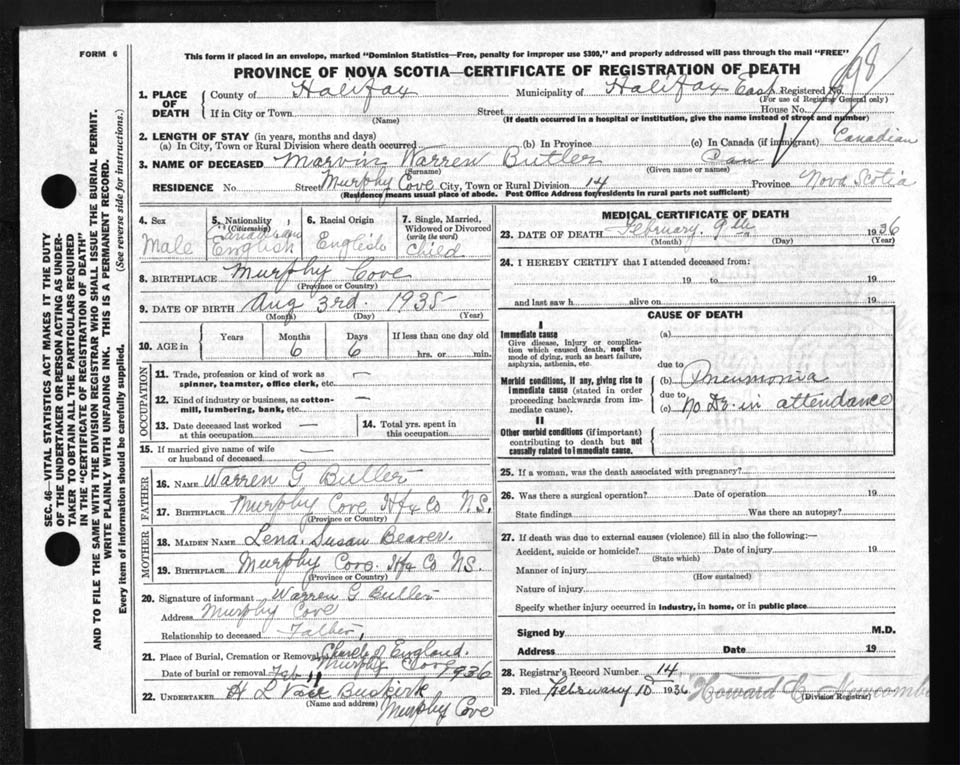 FORM 6
This form if placed in an envelope, marked "Dominion Statistics—Free, penalty for improper use $300," and properly addressed will pass through the mail "FREE"
PROVINCE OF NOVA SCOTIA—CERTIFICATE OF REGISTRATION OF DEATH
98
1. PLACE OF DEATH
County of Halifax Municipality of Halifax East Registered No.
(For use of Registrar General only)
If in City or Town Street House No.
(Name) (If death occurred in a hospital or institution, give the name instead of street and number)
2. LENGTH OF STAY (in years, months and days)
(a) In City, Town or Rural Division where death occurred (b) In Province (c) In Canada (if immigrant) Canadian
3. NAME OF DECEASED Marvin Warren Butler Can
(Surname) (Given name or names)
RESIDENCE No Street Murphy Cove City, Town or Rural Division 14 Province Nova Scotia
(Residence means usual place of abode. Post Office Address for residents in rural parts not sufficient)
4. Sex Male
5. Nationality (Citizenship) Canadian English
6. Racial Origin English
7. Single, Married, Widowed or Divorced (write the word) Child
8. BIRTHPLACE Murphy Cove
(Province or Country)
9. DATE OF BIRTH Aug 3rd. 1935
(Month) (Day) (Year)
10. AGE in Years Months 6 Days 6 If less than one day old hrs. or min.
OCCUPATION
11. Trade, profession or kind of work as spinner, teamster, office clerk, etc. —
12. Kind of industry or business, as cotton-mill, lumbering, bank, etc. —
13. Date deceased last worked at this occupation — 14. Total yrs. spent in this occupation
15. If married give name of wife or husband of deceased —
FATHER
16. NAME Warren G Butler
17. BIRTHPLACE Murphy Cove Hfx Co N.S.
(Province or Country)
MOTHER
18. MAIDEN NAME Lena Susan Beaver.
19. BIRTHPLACE Murphy Cove. Hfx Co NS.
(Province or Country)
20. Signature of informant Warren G Butler
Address Murphy Cove
Relationship to deceased Father,
21. Place of Burial, Cremation or Removal Church of England. Murphy Cove
Date of burial or removal Feb 11 1936
22. UNDERTAKER H L Van Buskirk
(Name and address) Murphy Cove
MEDICAL CERTIFICATE OF DEATH
23. DATE OF DEATH February. 9th 1936
(Month) (Day) (Year)
24. I HEREBY CERTIFY that I attended deceased from:
19 to 19
and last saw h alive on 19
CAUSE OF DEATH
I
Immediate cause (a)
Give disease, injury or complication which caused death, not the mode of dying, such as heart failure, asphyxia, asthenia, etc.
due to
Morbid conditions, if any, giving rise to immediate cause (stated in order proceeding backwards from immediate cause).
(b) Pneumonia
due to
(c) No Dr. in attendance
II
Other morbid conditions (if important) contributing to death but not causally related to immediate cause.
25. If a woman, was the death associated with pregnancy?
26. Was there a surgical operation? Date of operation 19
State findings Was there an autopsy?
27. If death was due to external causes (violence) fill in also the following:—
Accident, suicide or homicide? Date of injury 19
(State which)
Manner of injury
(How sustained)
Nature of injury
Specify whether injury occurred in industry, in home, or in public place
Signed by M.D.
Address Date 19
28. Registrar's Record Number 14
29. Filed February 10 1936 Howard C Newcombe
(Division Registrar)
SEC. 46—VITAL STATISTICS ACT MAKES IT THE DUTY
OF THE UNDERTAKER OR PERSON ACTING AS UNDER-
TAKER TO OBTAIN ALL THE PARTICULARS REQUIRED
IN THE "CERTIFICATE OF REGISTRATION OF DEATH"
AND TO FILE THE SAME WITH THE DIVISION REGISTRAR WHO SHALL ISSUE THE BURIAL PERMIT.
WRITE PLAINLY WITH UNFADING INK. THIS IS A PERMANENT RECORD.
Every item of information should be carefully supplied. (See reverse side for instructions.)